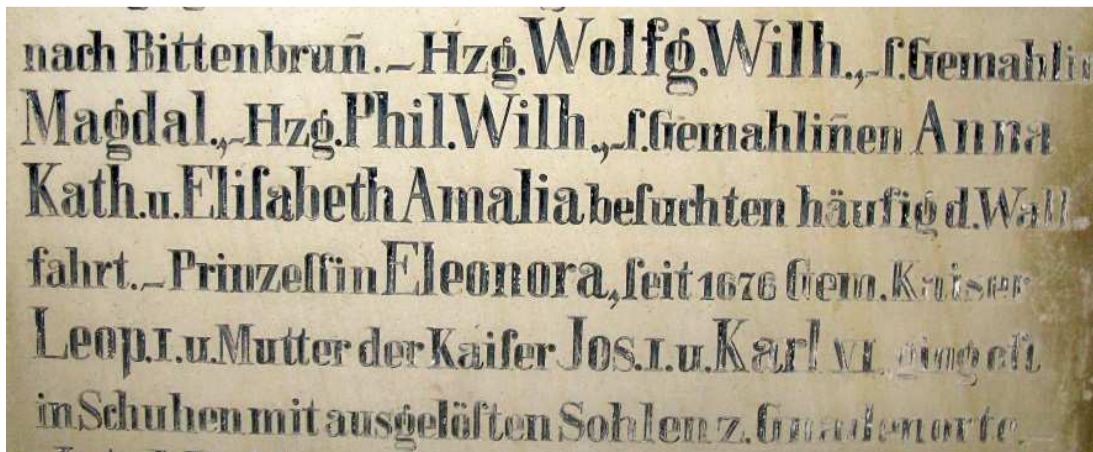 nach Bittenbrun̄. – Hzg. Wolfg. Wilh., – ſ. Gemahlin
Magdal., – Hzg. Phil. Wilh., – ſ. Gemahlin̄en Anna
Kath. u. Eliſabeth Amalia beſuchten häufig d. Wall-
fahrt. – Prinzeſſin Eleonora, ſeit 1676 Gem. Kaiser
Leop. I. u. Mutter der Kaiſer Jos. I. u. Karl VI. ging oft
in Schuhen mit ausgelöſten Sohlen z. Gnadenorte. –